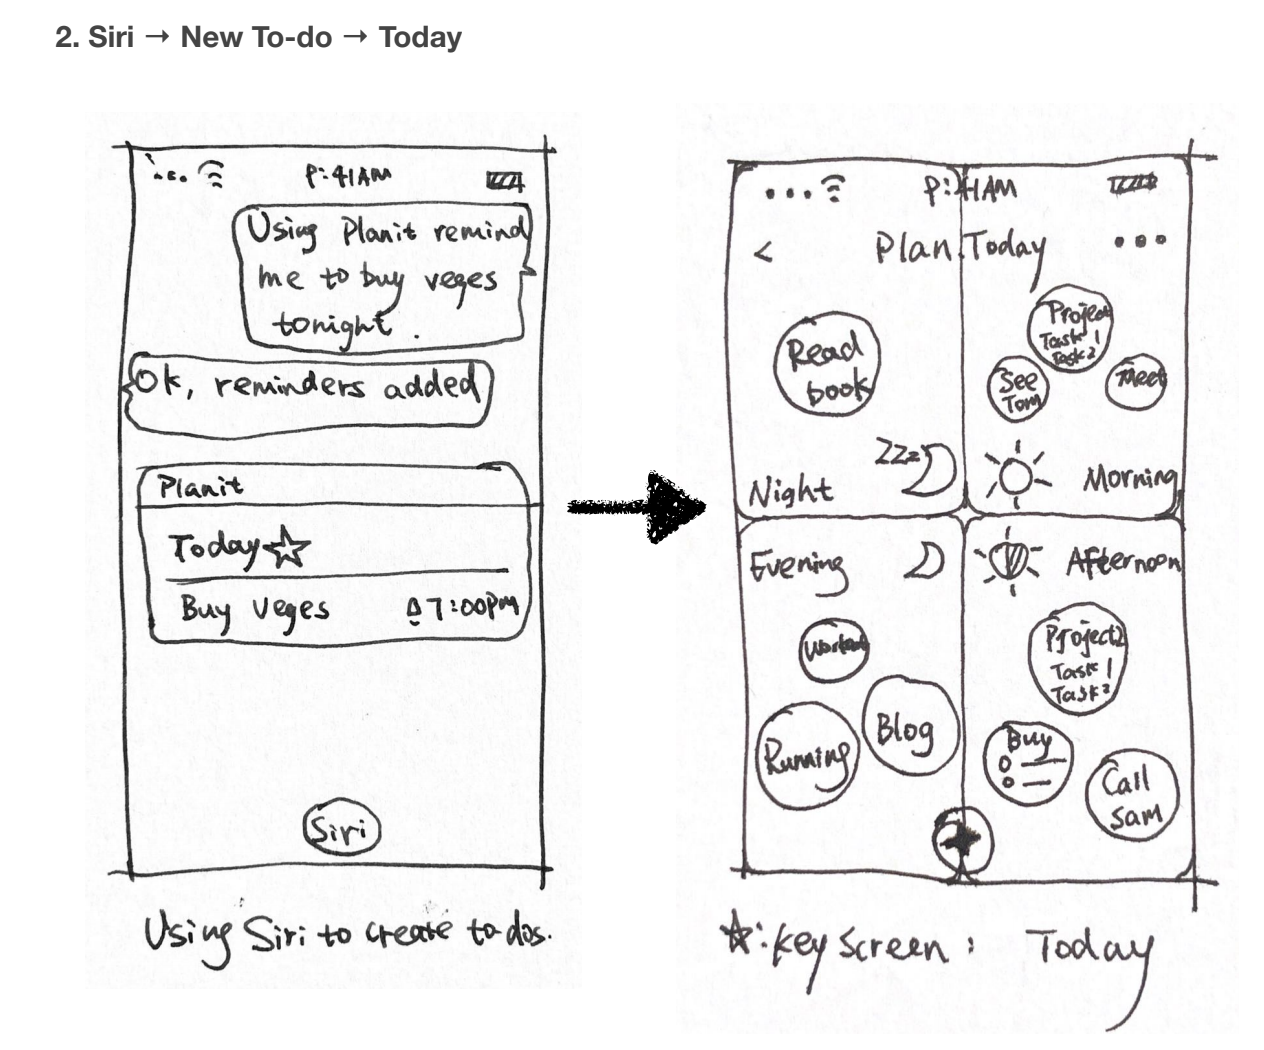 2. Siri → New To-do → Today
9:41AM
Using Planit remind
me to buy veges
tonight.
Ok, reminders added
Planit
Today
Buy veges 7:00PM
Siri
Using Siri to create to-dos.
9:41AM
< Plan.Today
Read
book
Zzz
Night
Project
Task 1
Task 2
See
Tom
Meet
Morning
Evening
Workout
Running
Blog
Afternoon
Project2
Task 1
Task 2
Buy
Call
Sam
☆: Key Screen: Today